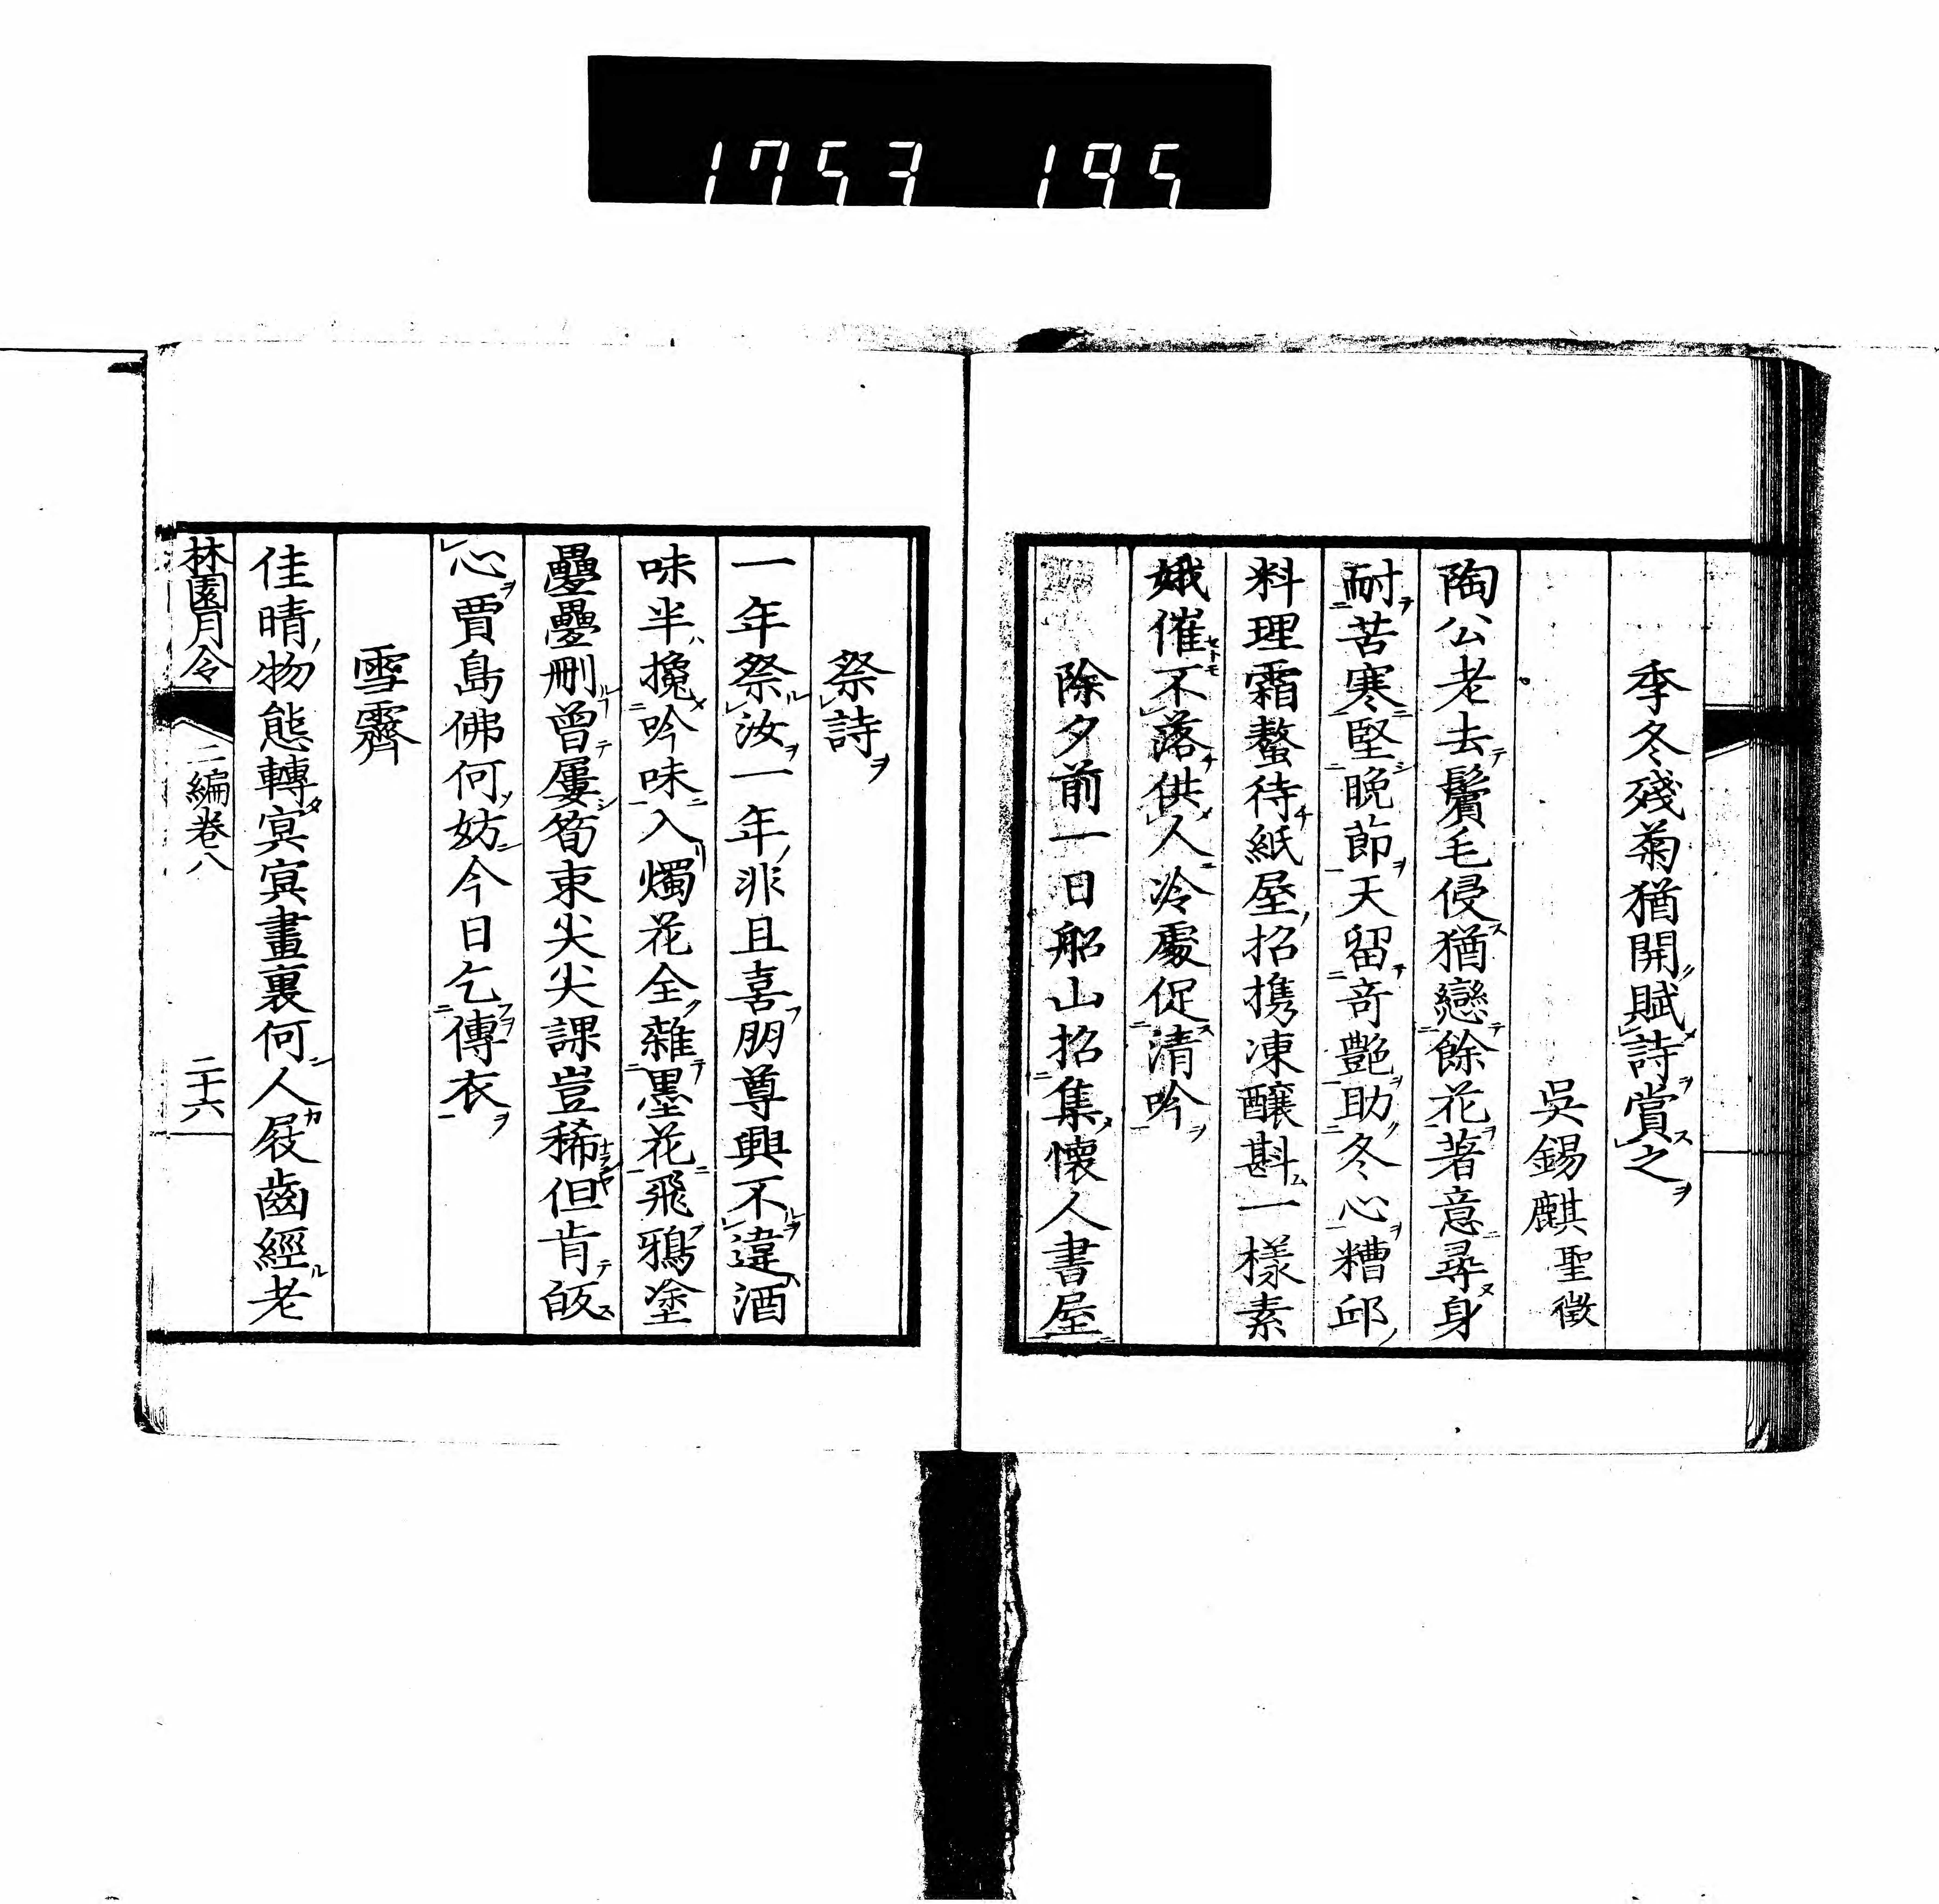 1753 195
季冬殘菊猶開賦詩賞之
吳錫麒聖徵
陶公老去鬢毛侵猶戀餘花著意尋身
耐苦寒堅晩節天留奇艷助冬心糟邱
料理霜螯待紙屋招携凍釀斟一樣素
娥催不落供人冷處促清吟
除夕前一日船山招集懷人書屋
祭詩
一年祭汝一年非且喜朋尊興不違酒
味半攙吟味入燭花全雜墨花飛鴉塗
疊疊刪曾屢筍束尖尖課豈稀但肯皈
心賈島佛何妨今日乞傳衣
雪霽
佳晴物態轉㝠㝠畫裏何人屐齒經老
林園月令 二編卷八 二十六